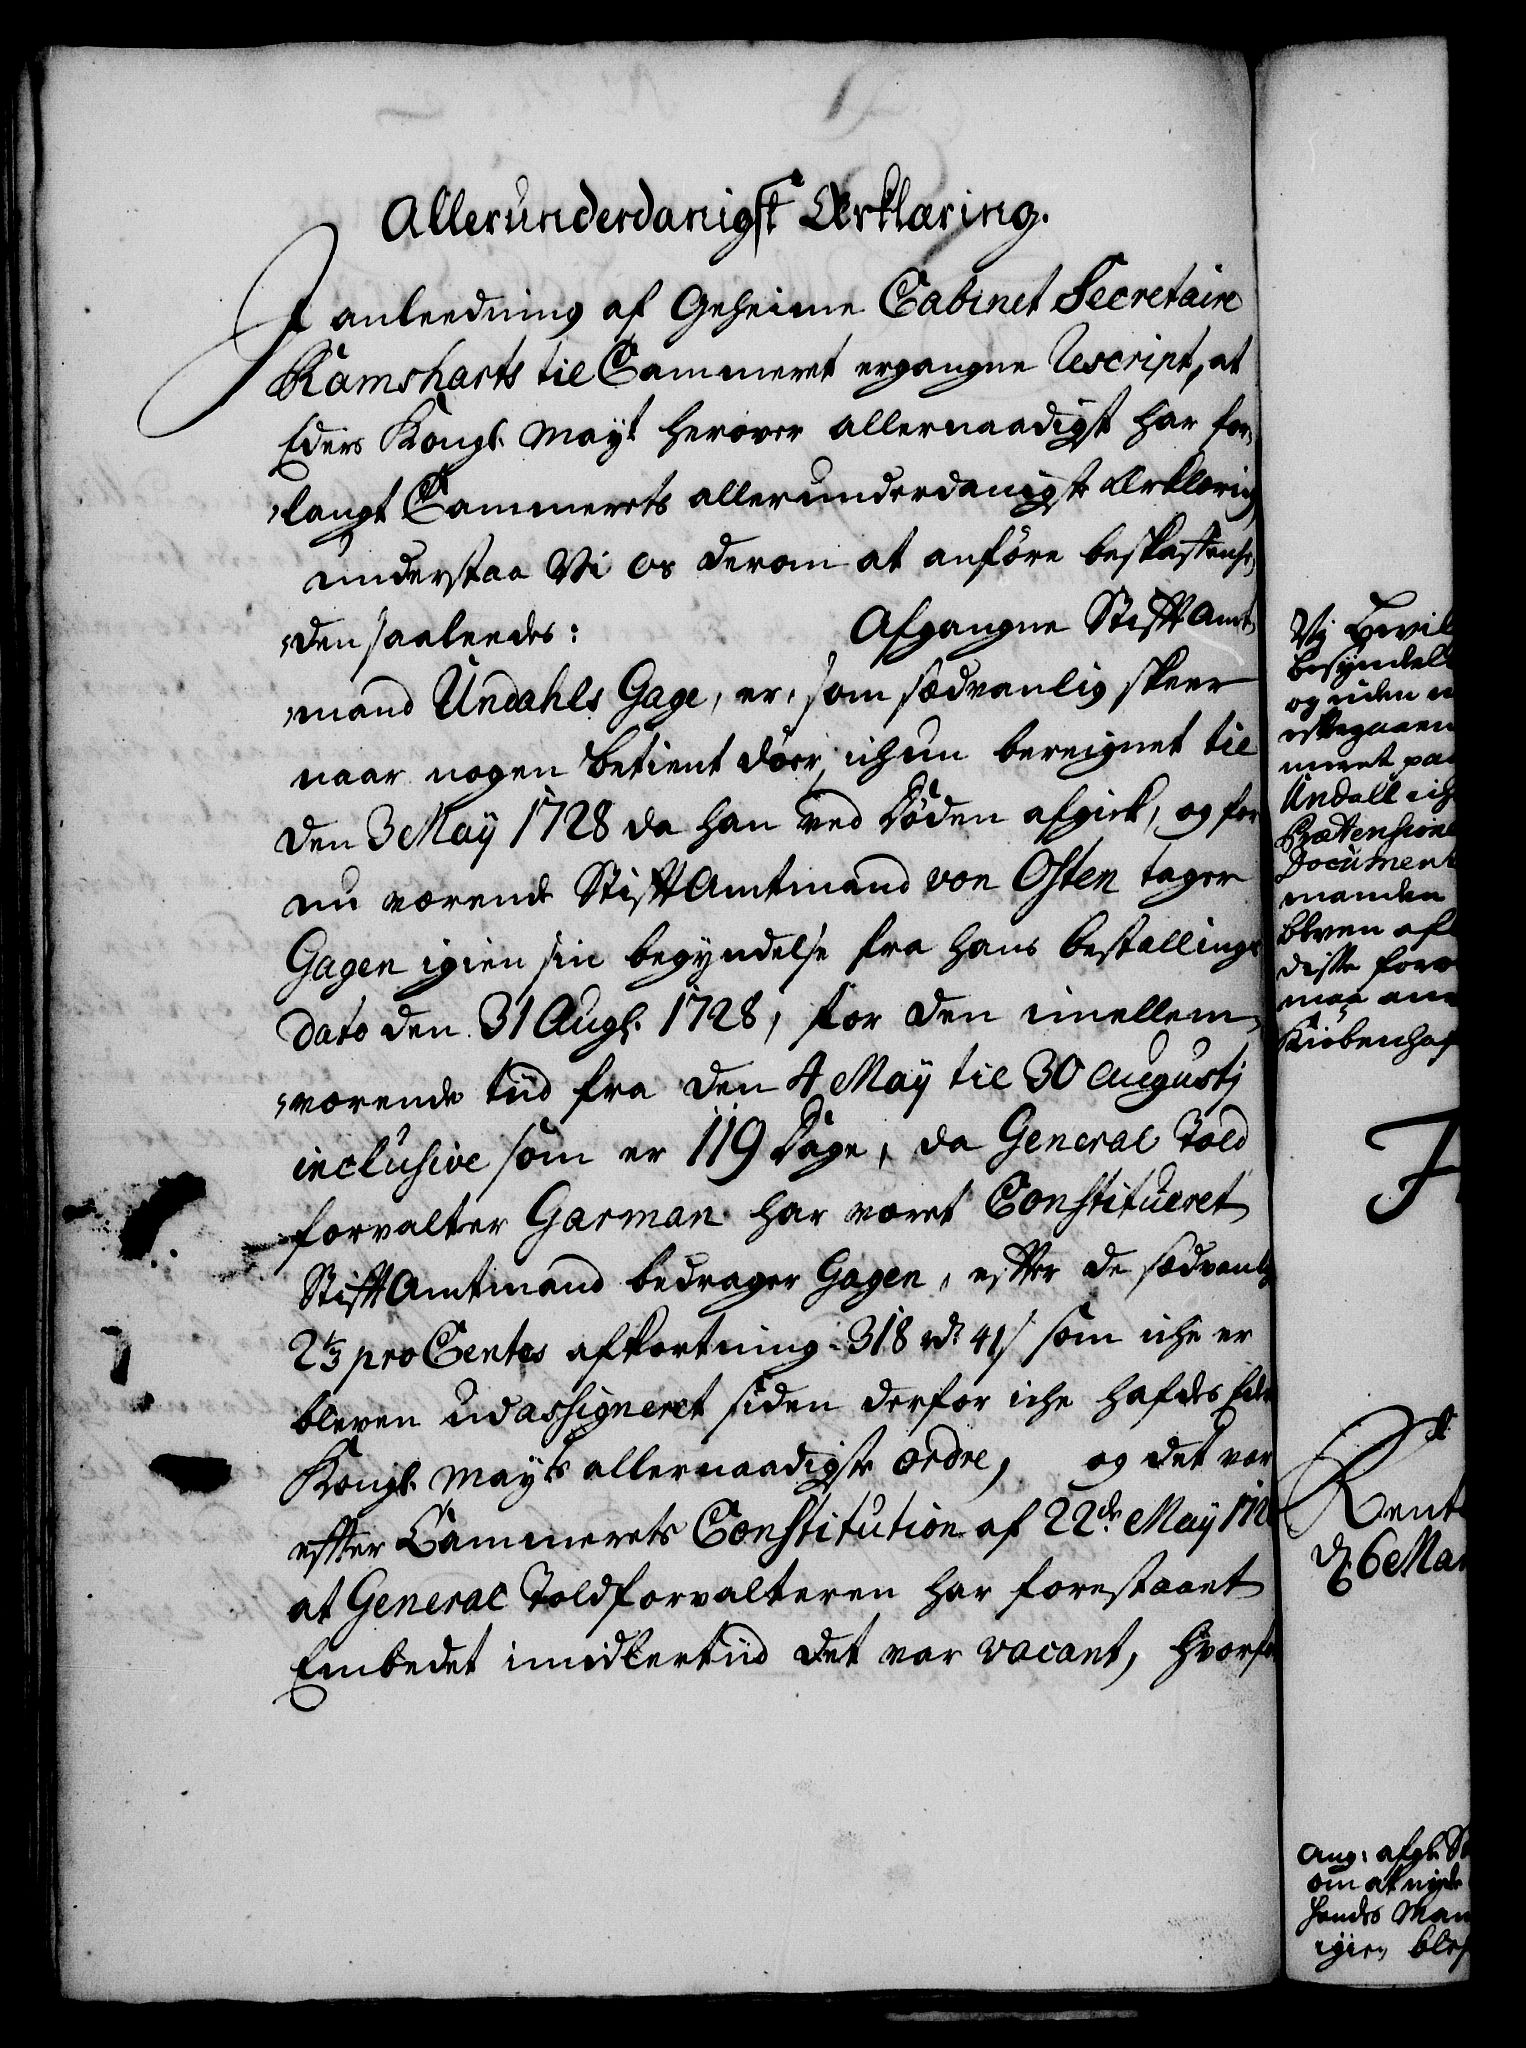 Allerunderdanigst Ærklæring.
I anleedning af Geheime Cabinet Secretaire
Ramsharts til Cammeret ergangne Rescript, at
Eders Kongl. Mayt. herover allernaadigst har for-
langt Cammerets allerunderdanigste Ærklæring,
understaa Vi os derom at anföre beskaffenhe-
den saaleedes: Afgangne StifftAmt-
mand Undahls Gage, er, som sædvanlig skeer
naar nogen Betient döer, ichun bereignet til
den 3 Maÿ 1728 da han ved Döden afgick, og for
nu værende StifftAmtmand von Osten tager
Gagen igien sin begyndelse fra hans bestallings
Dato den 31 Augs. 1728, for den imellem-
værende tiid fra den 4 Maÿ til 30 Augustj
inclusive som er 119 Dage, da General Told
forvalter Garman har været Constitueret
StifftAmtmand bedrager Gagen, effter de sædvanlig
2⅓ pro Centos afkortning 318 rd. 41 s som iche er
bleven udassigneret siden derfor iche hafdes Eders
Kongl. Mayts allernaadigste ordre, og det var
effter Cammerets Constitution af 22de May 172
at General Toldforvalteren har forestaaet
Embedet imidlertiid det var vacant, hvorfor
Vj
besyndel
og uden
meet paa
Undall ich
Prætension
Document
manden
bleven af
disse forr
maa an
Kiöbenhaf
F
Rent
d. 6 Mar
Ang: afgl. St
om at nyde
hendes Man
igien blef